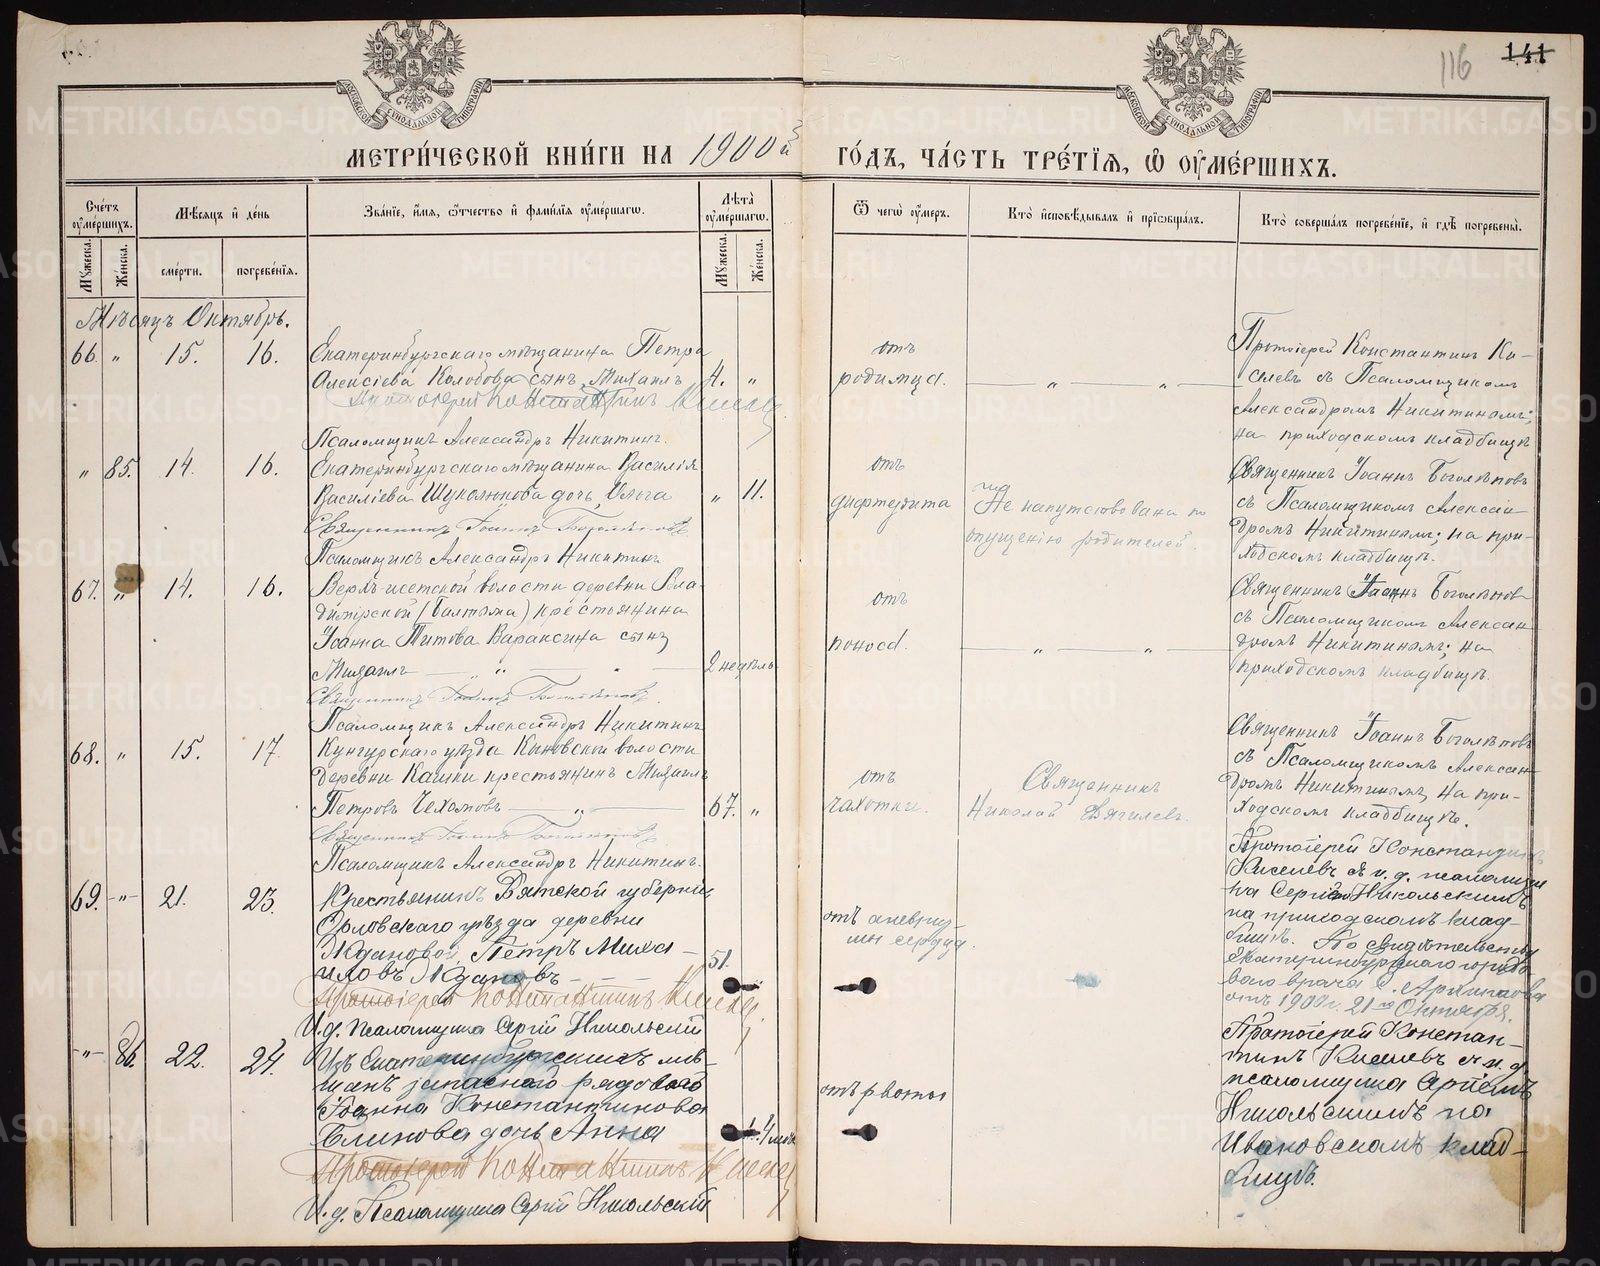 116 141
МЕТРИ́ЧЕСКОЙ КНИ́ГИ НА 1900й ГО́ДЪ, ЧА́СТЬ ТРЕ́ТЇѦ, Ѡ ОУМЕ́РШИХЪ.
Сче́тъ оуме́ршихъ.
Мѣ́сѧцъ и де́нь
Зва́нїе, и́мѧ, ѻ́тчество и фами́лїѧ оуме́ршагѡ.
Лѣ́та оуме́ршагѡ.
Ѿ чегѡ̀ оу́меръ.
Кто̀ и҆сповѣ́дывалъ и҆ прїѡбща́лъ.
Кто̀ соверша́лъ погребе́нїе, и҆ гдѣ̀ погребены̀.
Мꙋ́жеска. Же́нска.
сме́рти. погребе́нїѧ.
Мꙋ́жеска. Же́нска.
Мѣсяцъ Октябрь.
66. " 15. 16.
Екатеринбургскаго мѣщанина Петра
Алексіева Колобова сынъ Михаилъ 4. "
Протоіерей Константинъ Киселевъ
Псаломщикъ Александръ Никитинъ.
отъ
родимца.
Протоіерей Константинъ Ки-
селевъ съ Псаломщикомъ
Александромъ Никитинымъ;
на приходскомъ кладбищѣ
" 85. 14. 16.
Екатеринбургскаго мѣщанина Василія
Василіева Шуколюкова дочь Ольга " 11.
Священникъ Іоаннъ Боголѣповъ
Псаломщикъ Александръ Никитинъ
отъ
дифтерита
Не напутствована по
опущенію родителей.
Священникъ Іоаннъ Боголѣповъ
съ Псаломщикомъ Алексан-
дромъ Никитинымъ; на при-
ходскомъ кладбищѣ.
67. " 14. 16.
Верхъ-исетской волости деревни Вла-
димірской (Балтыма) крестьянина
Іоанна Титова Вараксина сынъ
Михаилъ 2 недѣль
Священникъ Іоаннъ Боголѣповъ
Псаломщикъ Александръ Никитинъ
отъ
поноса.
Священникъ Іоаннъ Боголѣповъ
съ Псаломщикомъ Алексан-
дромъ Никитинымъ; на
приходскомъ кладбищѣ.
68. " 15. 17.
Кунгурскаго уѣзда Кыновской волости
деревни Кашки крестьянинъ Михаилъ
Петровъ Чехомовъ 67. "
Священникъ Іоаннъ Боголѣповъ
Псаломщикъ Александръ Никитинъ.
отъ
чахотки.
Священникъ
Николай Дягилевъ.
Священникъ Іоаннъ Боголѣповъ
съ Псаломщикомъ Алексан-
дромъ Никитинымъ, на при-
ходскомъ кладбищѣ.
69. -"- 21. 23.
Крестьянинъ Вятской губерніи
Орловскаго уѣзда деревни
Ждановой, Петръ Миха-
иловъ Ждановъ 51.
Протоіерей Константинъ Киселевъ
И.д. псаломщика Сергій Никольскій
отъ аневриз-
мы сердца.
Протоіерей Константинъ
Киселевъ съ и.д. псаломщи
ка Сергіемъ Никольскимъ
на приходскомъ клад-
бищѣ. По свидѣтельству
Екатеринбургскаго город
вого врача Архипова
отъ 1900 г. 21го Октября.
-"- 86. 22. 24.
Изъ Екатеринбургскихъ мѣ-
щанъ запаснаго рядового
Іоанна Константинова
Блинова дочь Анна 4 мѣс
Протоіерей Константинъ Киселевъ
И.д. Псаломщика Сергій Никольскій
отъ рвоты
Протоіерей Констан-
тинъ Киселевъ съ и.д.
псаломщика Сергіемъ
Никольскимъ на
Ивановскомъ клад-
бищѣ.
METRIKI.GASO-URAL.RU